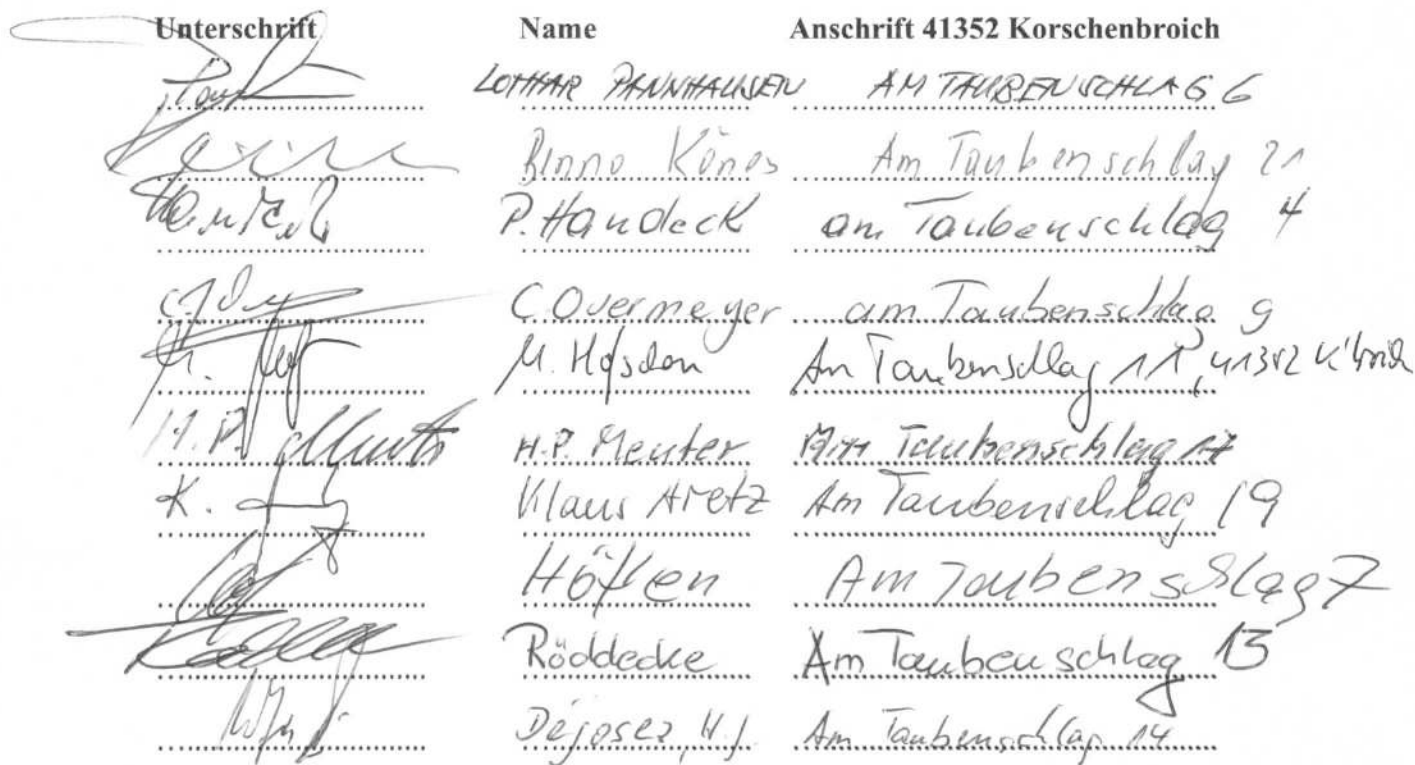 Unterschrift Name Anschrift 41352 Korschenbroich
LOTHAR PANNHAUSEN AM TAUBENSCHLAG 6
Könes Am Taubenschlag 21
P. Handeck am Taubenschlag 4
C. Overmeyer am Taubenschlag 9
M. Am Taubenschlag 11, 41352 K'broich
H.P. H.P. Menter Am Taubenschlag 17
K. Klaus Aretz Am Taubenschlag 19
Höflen Am Taubenschlag 7
Röddecke Am Taubenschlag 13
Dejosez, H.J. Am Taubenschlag 14